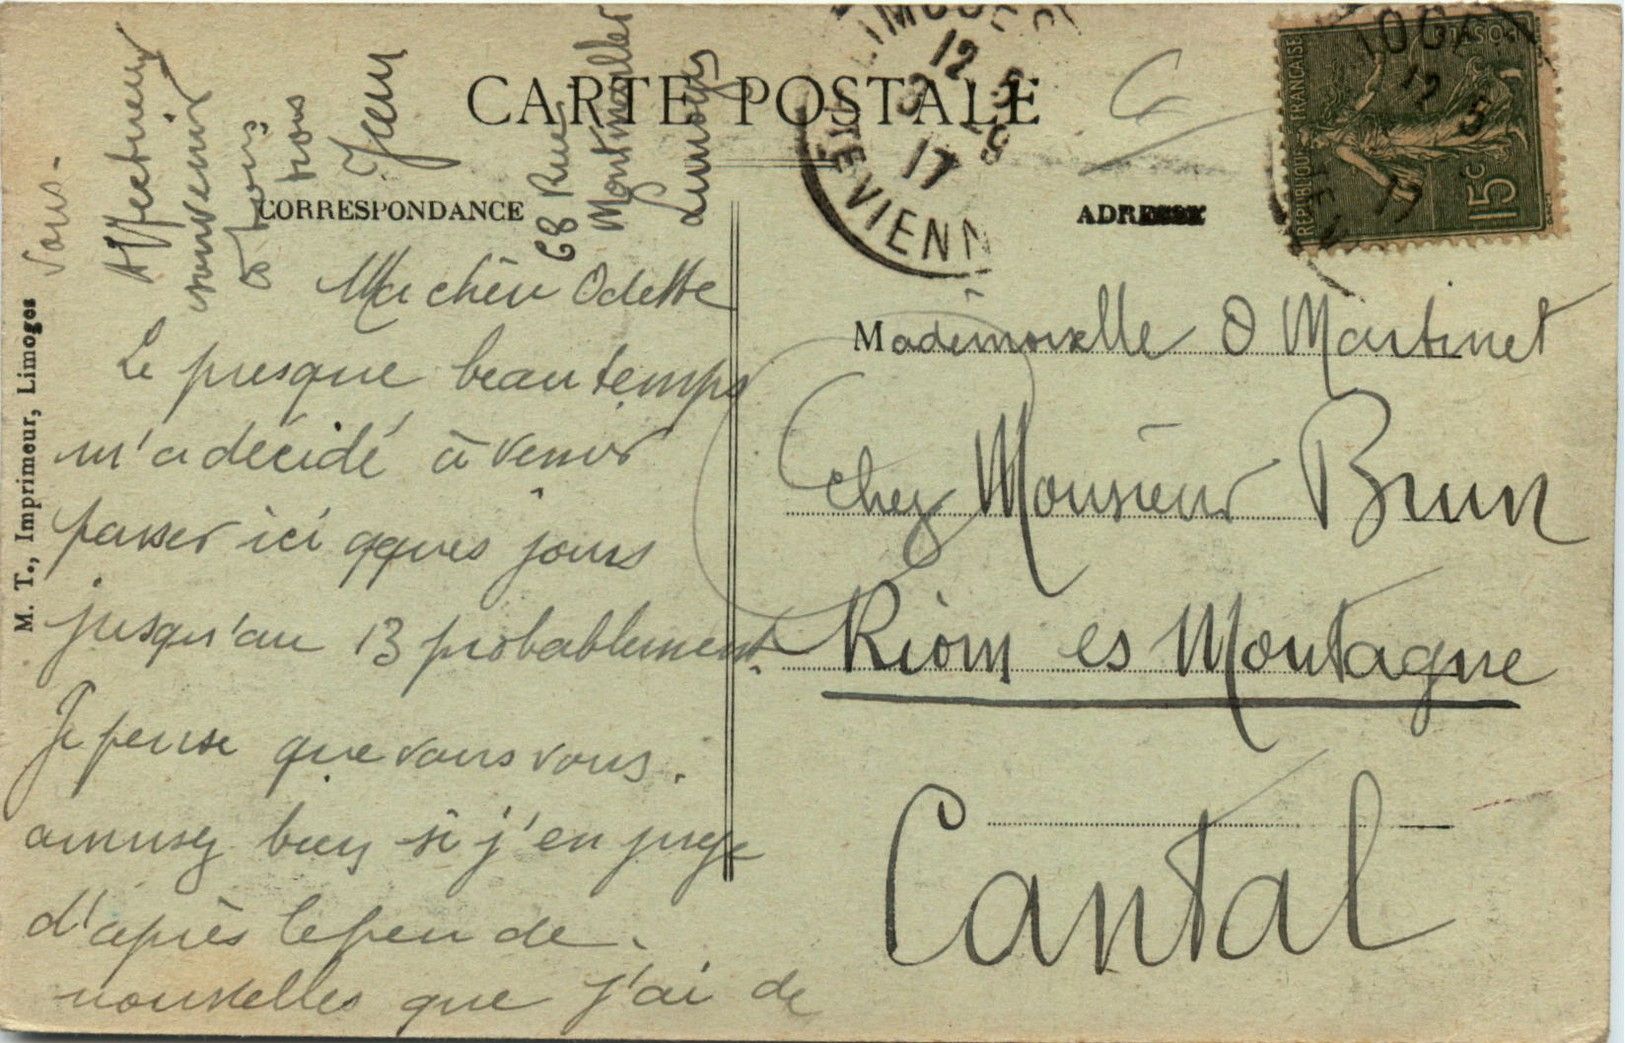 CARTE POSTALE
CORRESPONDANCE
ADRESSE
M. T., Imprimeur, Limoges
Ma chère Odette
Le presque beau temps
m'a décidé à venir
passer ici qques jours
jusqu'au 13 probablement.
Je pense que vous vous
amusez bien si j'en juge
d'après le peu de
nouvelles que j'ai de
vous.
Affectueux
souvenir
à tous
trois
Jean
68 Rue
Montmailler
Limoges
Mademoiselle O Martinet
chez Monsieur Brun
Riom es Montagne
Cantal
LIMOGES
12
5 -9
17
HTE VIENNE
REPUBLIQUE FRANÇAISE
POSTES
15c
12
5
17